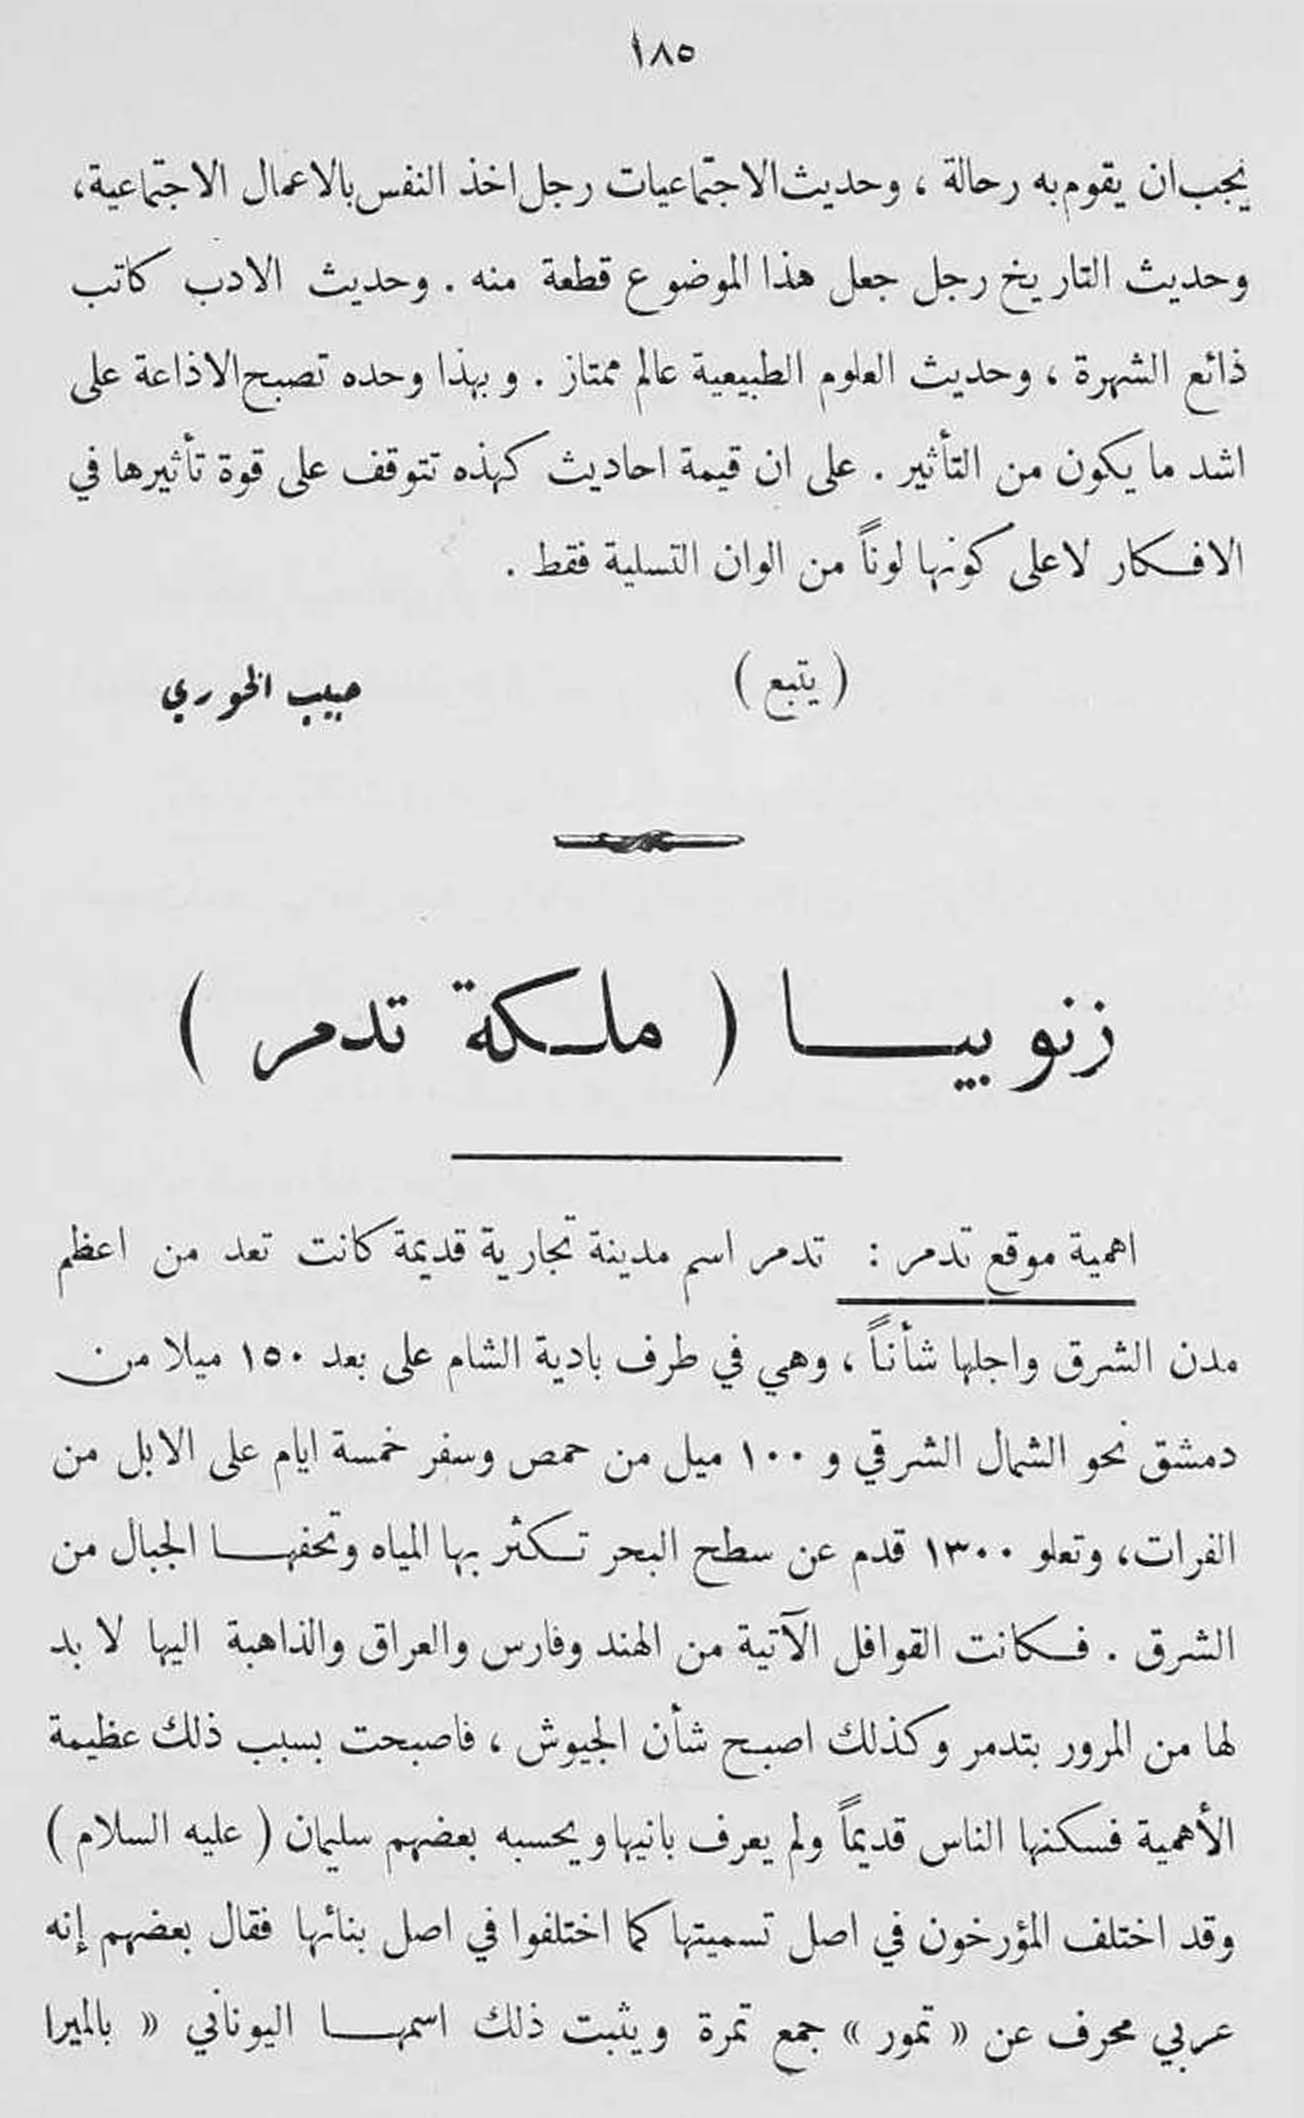 ١٨٥
يجب ان يقوم به رحالة ، وحديث الاجتماعيات رجل اخذ النفس بالاعمال الاجتماعية،
وحديث التاريخ رجل جعل هذا الموضوع قطعة منه . وحديث الادب كاتب
ذائع الشهرة ، وحديث العلوم الطبيعية عالم ممتاز . وبهذا وحده تصبح الاذاعة على
اشد ما يكون من التأثير . على ان قيمة احاديث كهذه تتوقف على قوة تأثيرها في
الافكار لا على كونها لوناً من الوان التسلية فقط .
( يتبع ) حبيب الخوري
زنوبيا ( ملكة تدمر )
اهمية موقع تدمر : تدمر اسم مدينة تجارية قديمة كانت تعد من اعظم
مدن الشرق واجلها شأناً ، وهي في طرف بادية الشام على بعد ١٥٠ ميلا من
دمشق نحو الشمال الشرقي و ١٠٠ ميل من حمص وسفر خمسة ايام على الابل من
الفرات، وتعلو ١٣٠٠ قدم عن سطح البحر تكثر بها المياه وتحفها الجبال من
الشرق . فكانت القوافل الآتية من الهند وفارس والعراق والذاهبة اليها لا بد
لها من المرور بتدمر وكذلك اصبح شأن الجيوش ، فاصبحت بسبب ذلك عظيمة
الأهمية فسكنها الناس قديماً ولم يعرف بانيها ويحسبه بعضهم سليمان ( عليه السلام )
وقد اختلف المؤرخون في اصل تسميتها كما اختلفوا في اصل بنائها فقال بعضهم إنه
عربي محرف عن « تمور » جمع تمرة ويثبت ذلك اسمها اليوناني « بالميرا